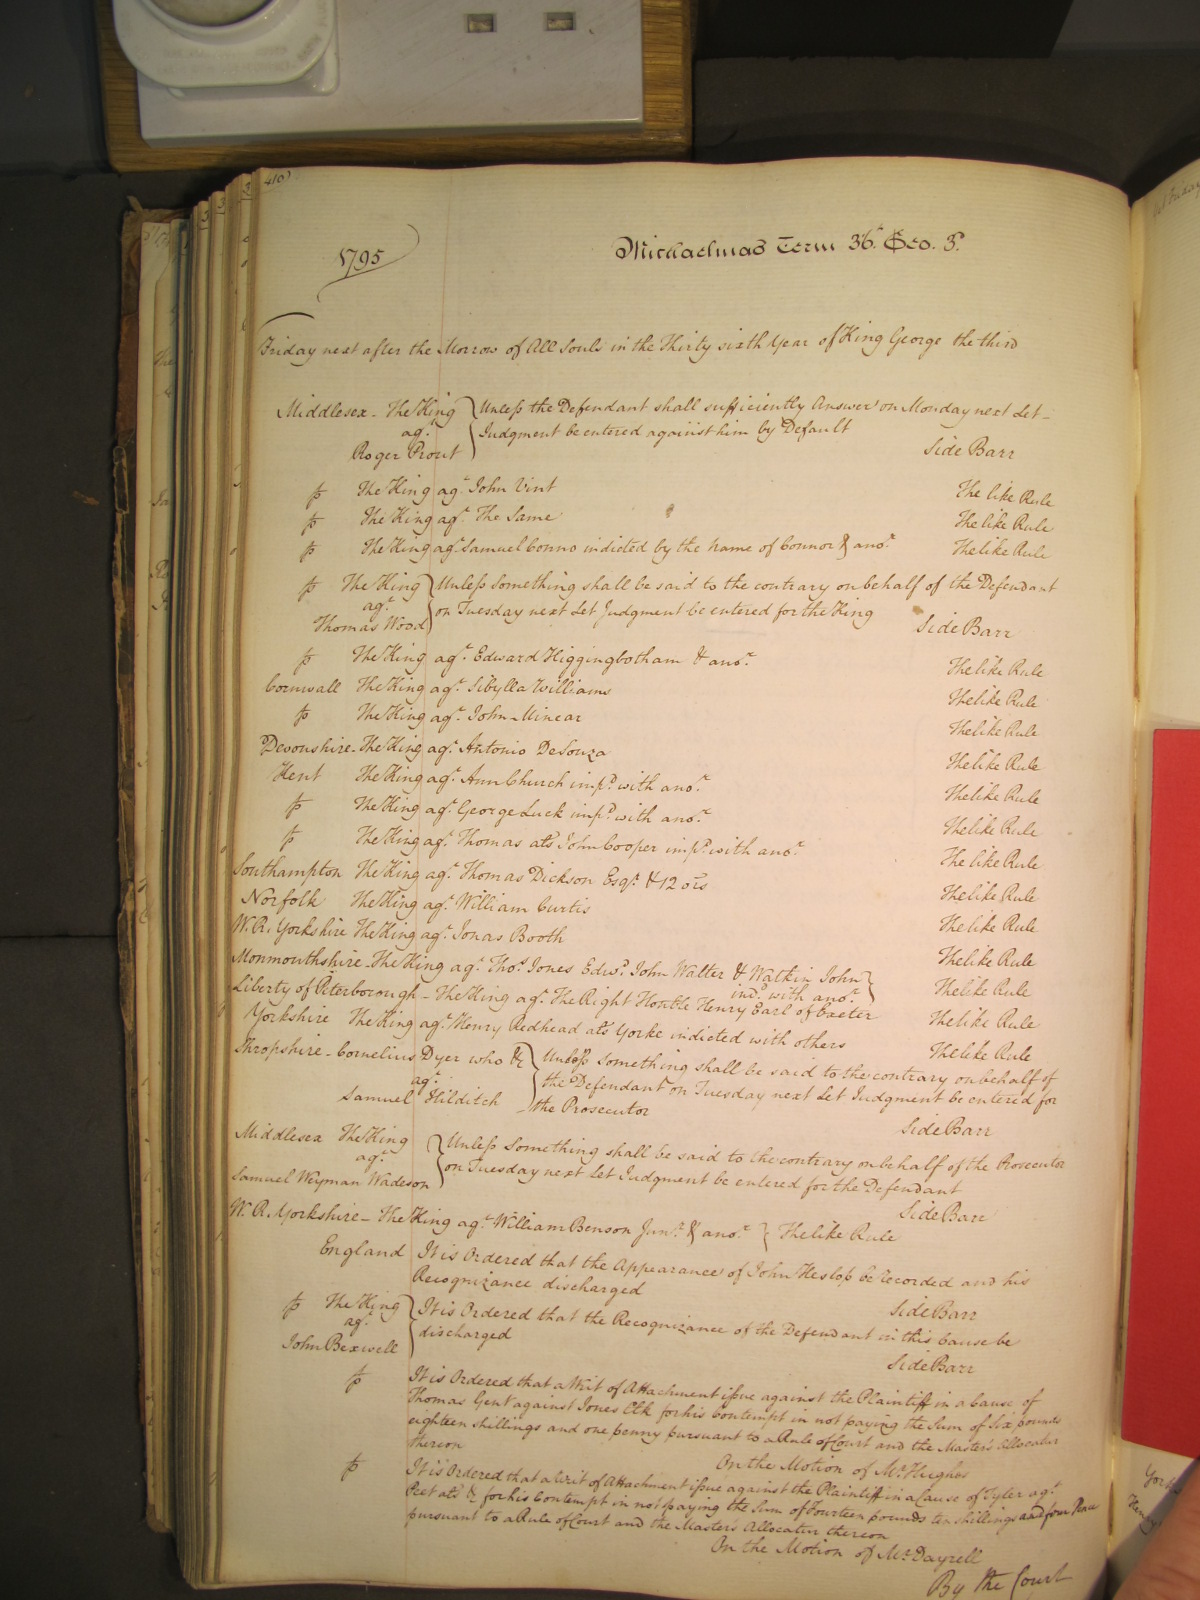 410
1795
Michaelmas Term 36.th Geo. 3.d
Friday next after the Morrow of All Souls in the Thirty sixth Year of King George the third
Middlesex - The King } Unless the Defendant shall sufficiently Answer on Monday next Let
ag.t } Judgment be entered against him by Default
Roger Prout } Side Barr
The King ag.t John Vint The like Rule
The King ag.t The Same The like Rule
The King ag.t Samuel Conno indicted by the name of Connor & ano.r The like Rule
The King } Unless Something shall be said to the contrary on behalf of the Defendant
ag.t } on Tuesday next Let Judgment be entered for the King
Thomas Wood } Side Barr
The King ag.t Edward Higginbotham & ano.r The like Rule
Cornwall The King ag.t Sibylla Williams The like Rule
The King ag.t John Minear The like Rule
Devonshire - The King ag.t Antonio DeSouza The like Rule
Kent The King ag.t Ann Church imp.d with ano.r The like Rule
The King ag.t George Luck imp.d with ano.r The like Rule
The King ag.t Thomas ats John Cooper imp.d with ano.r The like Rule
Southampton The King ag.t Thomas Dickson Esq.r & 12 ors The like Rule
Norfolk The King ag.t William Curtis The like Rule
W. R. Yorkshire The King ag.t Jonas Booth The like Rule
Monmouthshire - The King ag.t Tho.s Jones Edw.d John Walter & Watkin John }
ind.d with ano.r } The like Rule
Liberty of Peterborough - The King ag.t The Right Honble Henry Earl of Exeter The like Rule
Yorkshire The King ag.t Henry Redhead ats Yorke indicted with others The like Rule
Shropshire - Cornelius Dyer who &c } Unless Something shall be said to the contrary on behalf of
ag.t } the Defendant on Tuesday next Let Judgment be entered for
Samuel Hilditch } the Prosecutor
Side Barr
Middlesex The King } Unless Something shall be said to the contrary on behalf of the Prosecutor
ag.t } on Tuesday next Let Judgment be entered for the Defendant
Samuel Weyman Wadeson } Side Barr
W. R. Yorkshire - The King ag.t William Benson Jun.r & ano.r } The like Rule
England It is Ordered that the Appearance of John Heslop be recorded and his
Recognizance discharged
Side Barr
The King } It is Ordered that the Recognizance of the Defendant in this Cause be
ag.t } discharged
John Bexwell } Side Barr
It is Ordered that a Writ of Attachment issue against the Plaintiff in a Cause of
Thomas Gent against Jones Clk for his Contempt in not paying the Sum of Six pounds
eighteen shillings and one penny pursuant to a Rule of Court and the Master's Allocatur
thereon
On the Motion of M.r Hughes
It is Ordered that a Writ of Attachment issue against the Plaintiff in a Cause of Tyler ag.t
Peet ats &c for his Contempt in not paying the Sum of Fourteen pounds ten shillings and four Pence
pursuant to a Rule of Court and the Master's Allocatur thereon
On the Motion of M.r Dayrell
By the Court